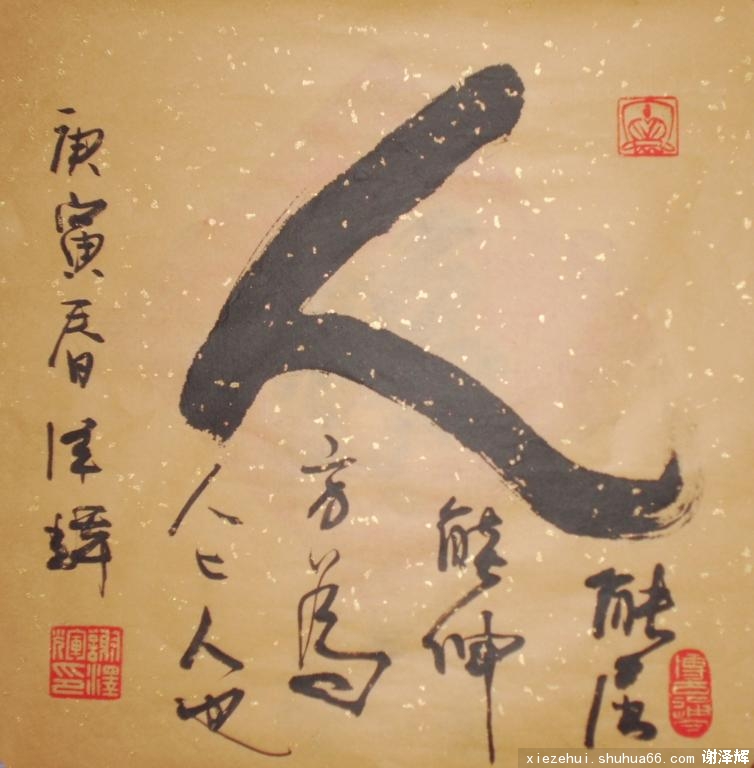 人
能屈
能伸
方為
人上人也
庚寅春泽輝
謝澤輝印
xiezehui.shuhua66.com 谢泽辉